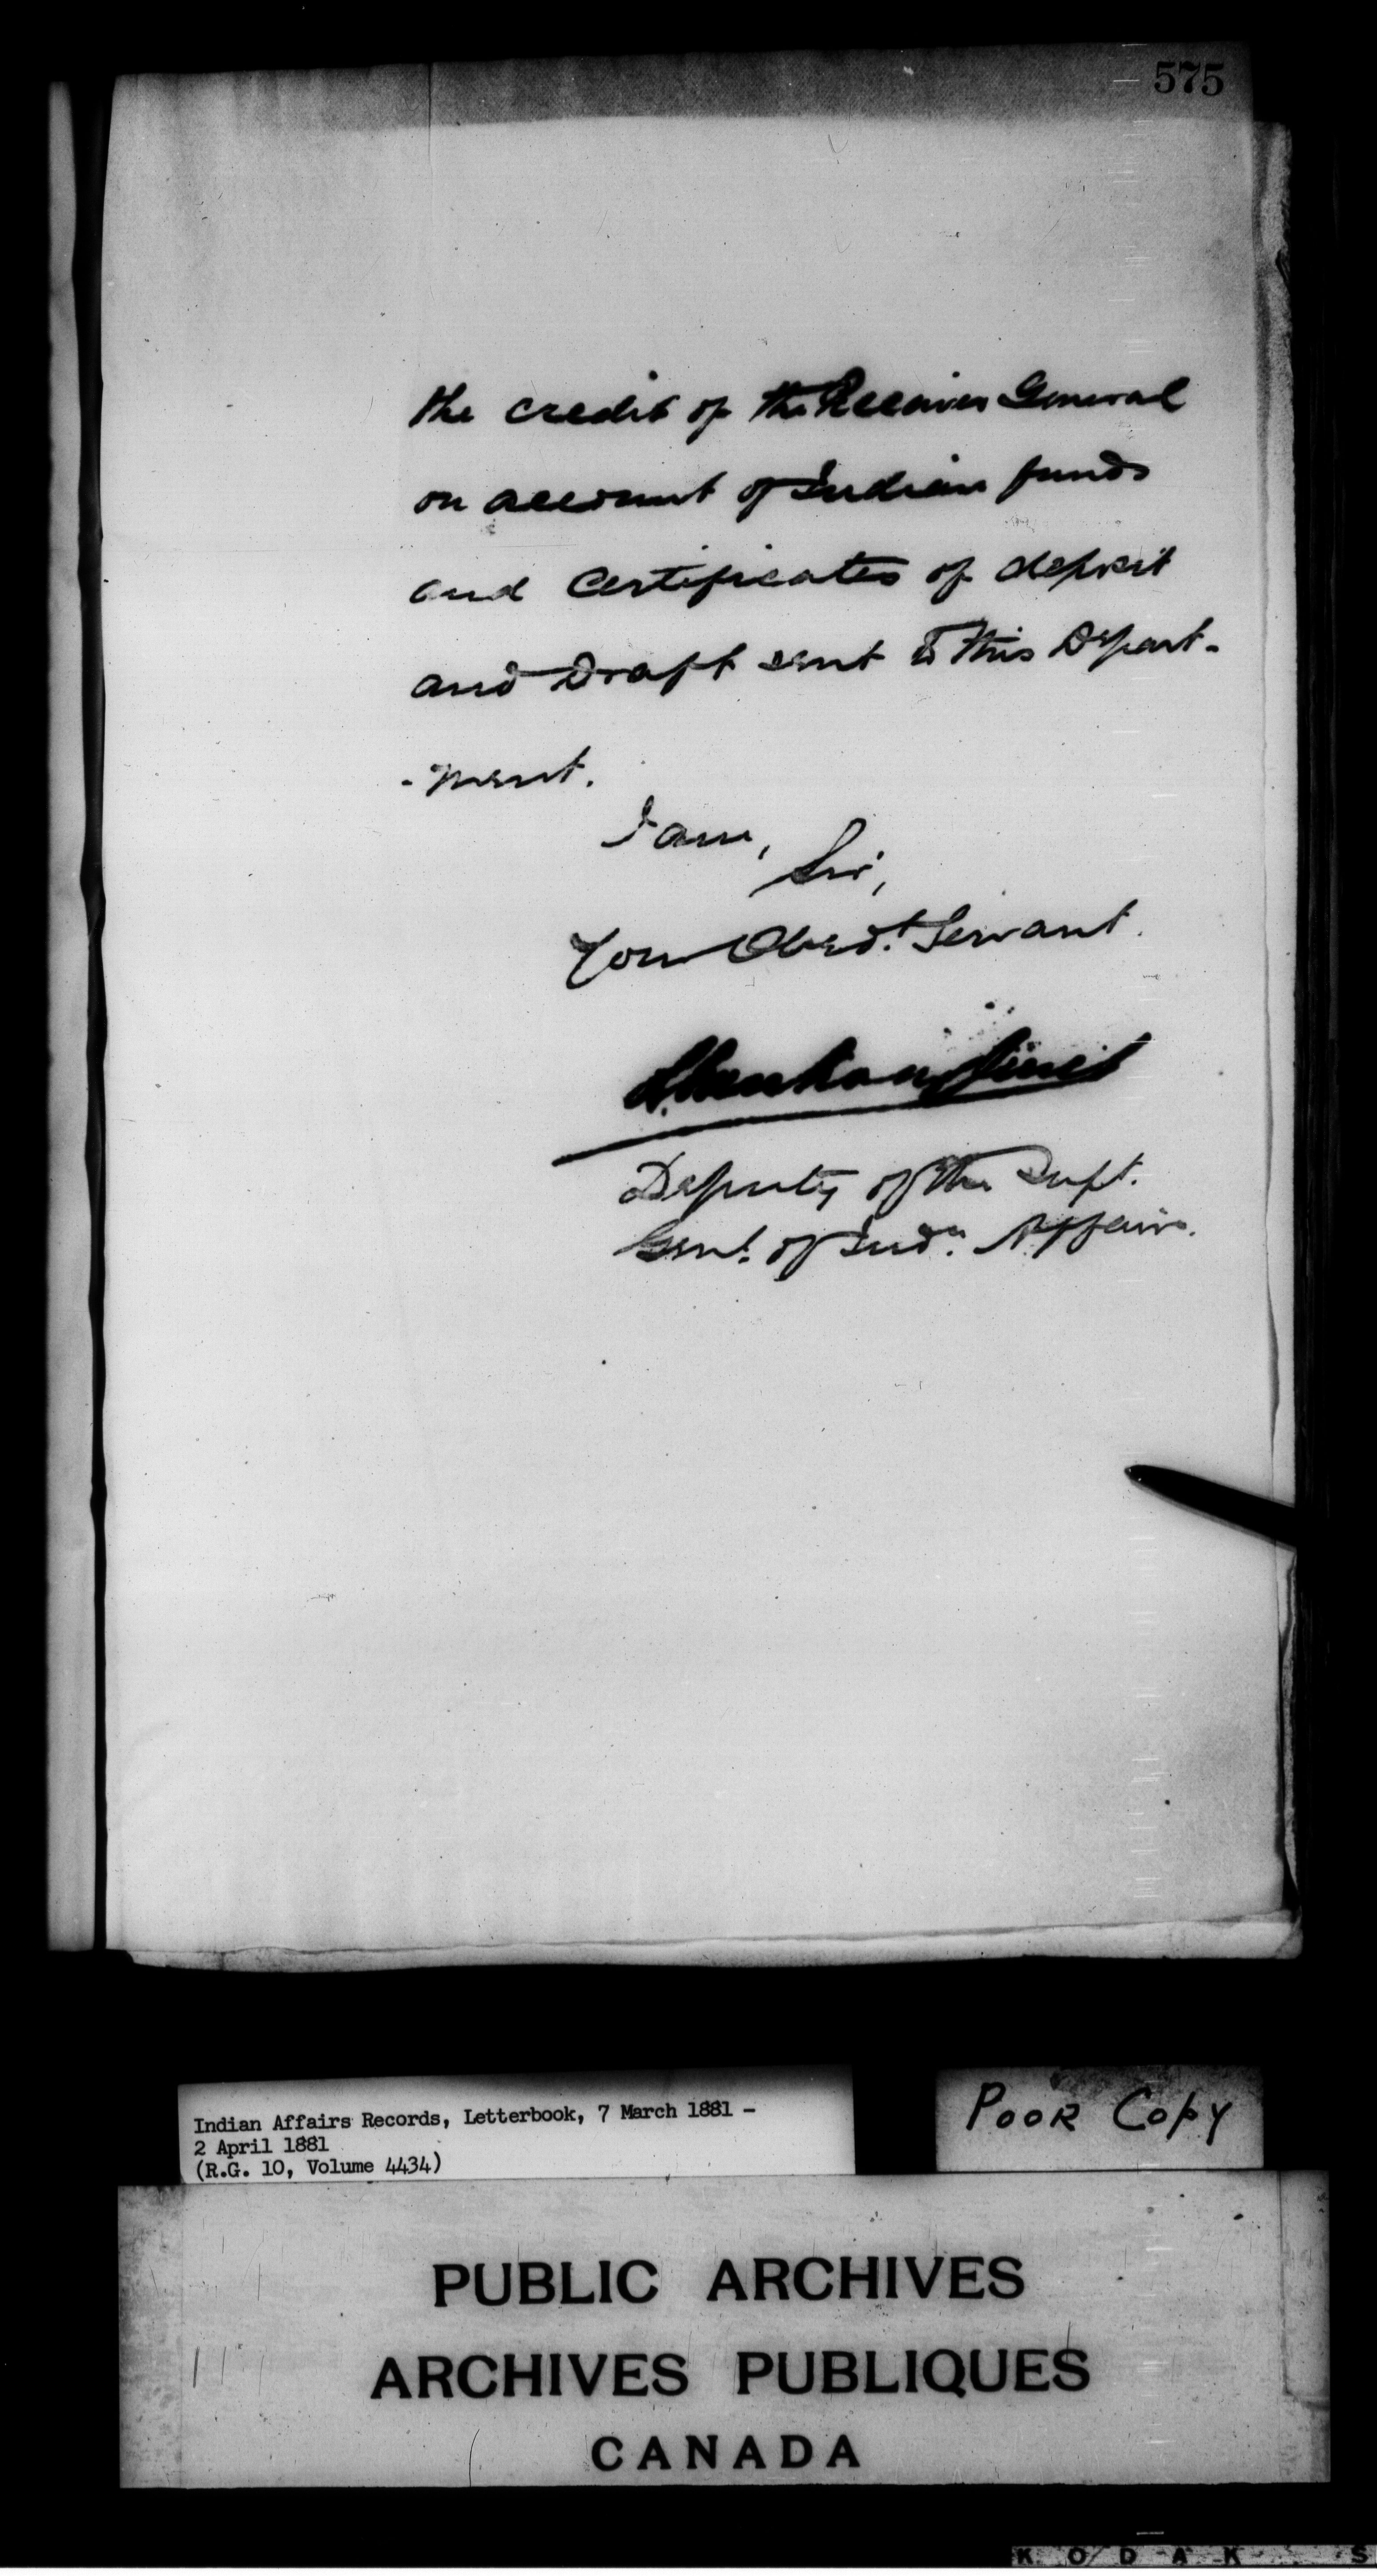 575
the credit of the Receiver General
on account of Indian funds
and Certificates of deposit
and Draft sent to this Depart-
-ment.
I am,
Sir,
Your Obedt. Servant.
L. Vankoughnet
Deputy of the Supt.
Genl. of Indn. Affairs.
Indian Affairs Records, Letterbook, 7 March 1881 -
2 April 1881
(R.G. 10, Volume 4434)
POOR COPY
PUBLIC ARCHIVES
ARCHIVES PUBLIQUES
CANADA
KODAK S